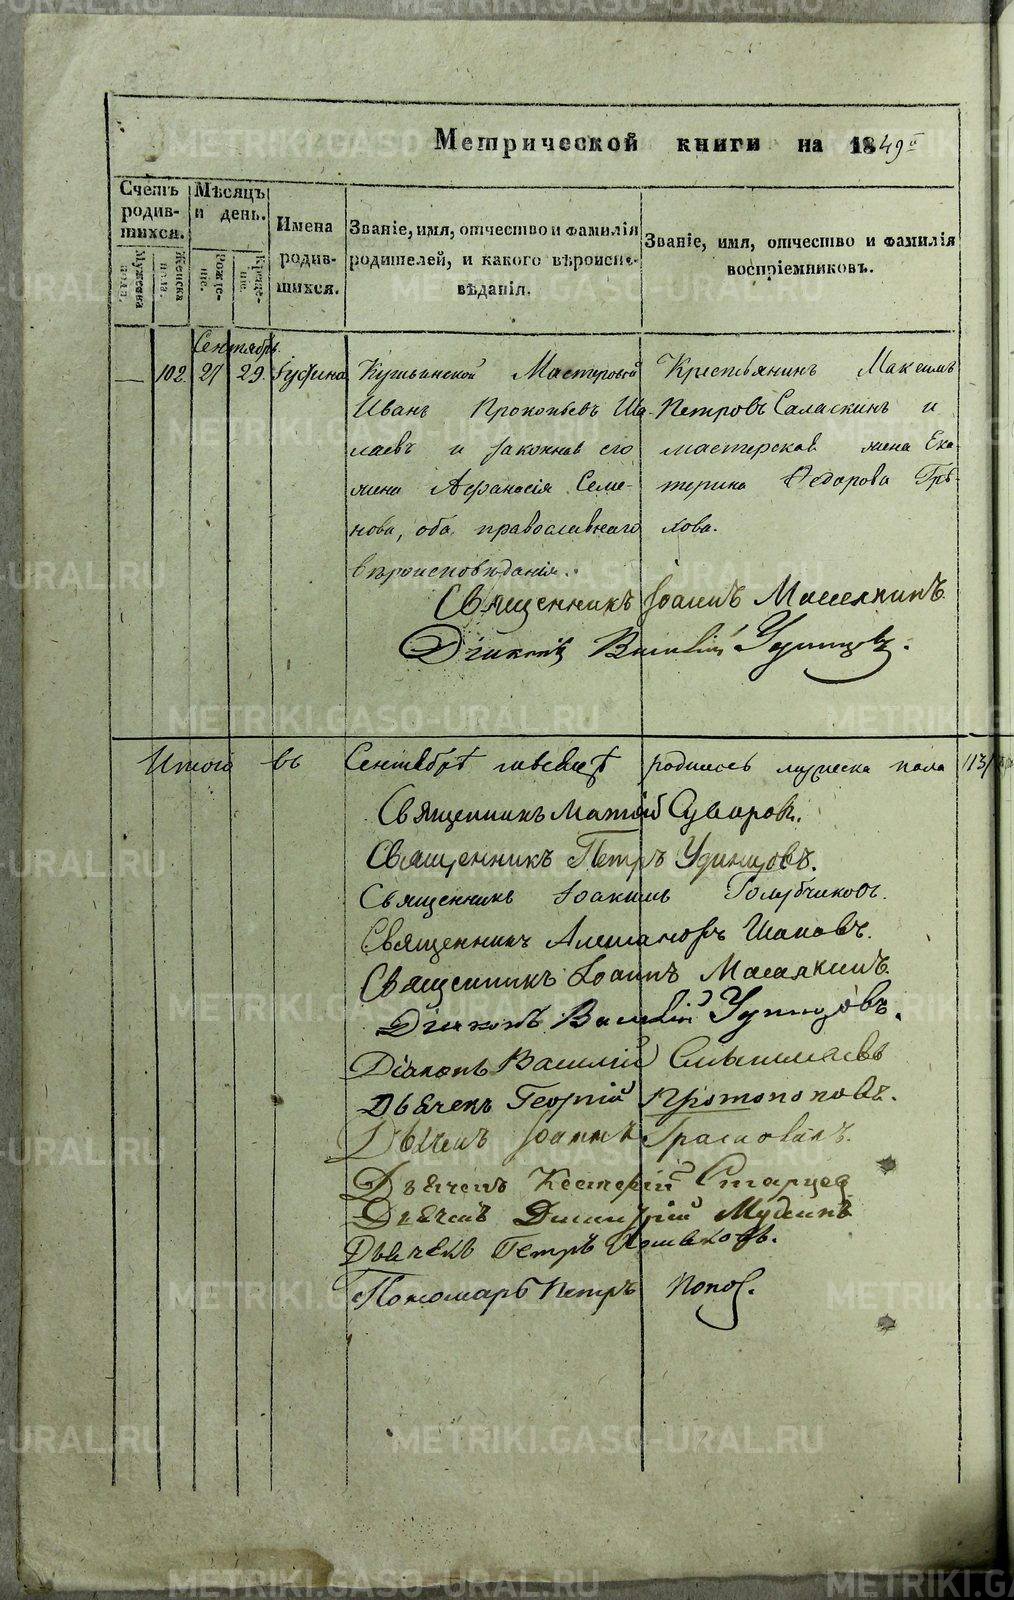 Метрической книги на 1849й
Счетъ родившихся.
Мужеска пола.
Женска пола.
Мѣсяцъ и день.
Рожденіе.
Крещеніе.
Имена родившихся.
Званіе, имя, отчество и фамилія
родителей, и какого вѣроиспо-
вѣданія.
Званіе, имя, отчество и фамилія
воспріемниковъ.
Сентябрь.
— 102. 27 29. Руфина
Кушвинской Мастеровой
Иванъ Прокопьевъ Ша-
лаевъ и законная его
жена Афанасія Семе-
нова, оба православнаго
вѣроисповѣданія.
Крестьянинъ Максимъ
Петровъ Саласкинъ и
мастерская жена Ека-
терина Ѳедорова Грѣ-
хова.
Священникъ Іоаннъ Масялкинъ
Діаконъ Василій Удинцовъ.
Итого въ Сентябрѣ мѣсяцѣ родилось мужеска пола 113
Священникъ Матвій Суворовъ.
Священникъ Петръ Удинцовъ.
Священникъ Іоакимъ Голубчиковъ.
Священникъ Александръ Шаповъ.
Священникъ Іоаннъ Масялкинъ.
Діаконъ Василій Удинцовъ.
Діаконъ Василій Смышляевъ
Дьячекъ Георгій Протопоповъ.
Дьячекъ Іоаннъ
Дьячекъ Старцев
Дьячекъ Димитрій
Дьячекъ Петръ
Пономарь Петръ Попов.
METRIKI.GASO-URAL.RU